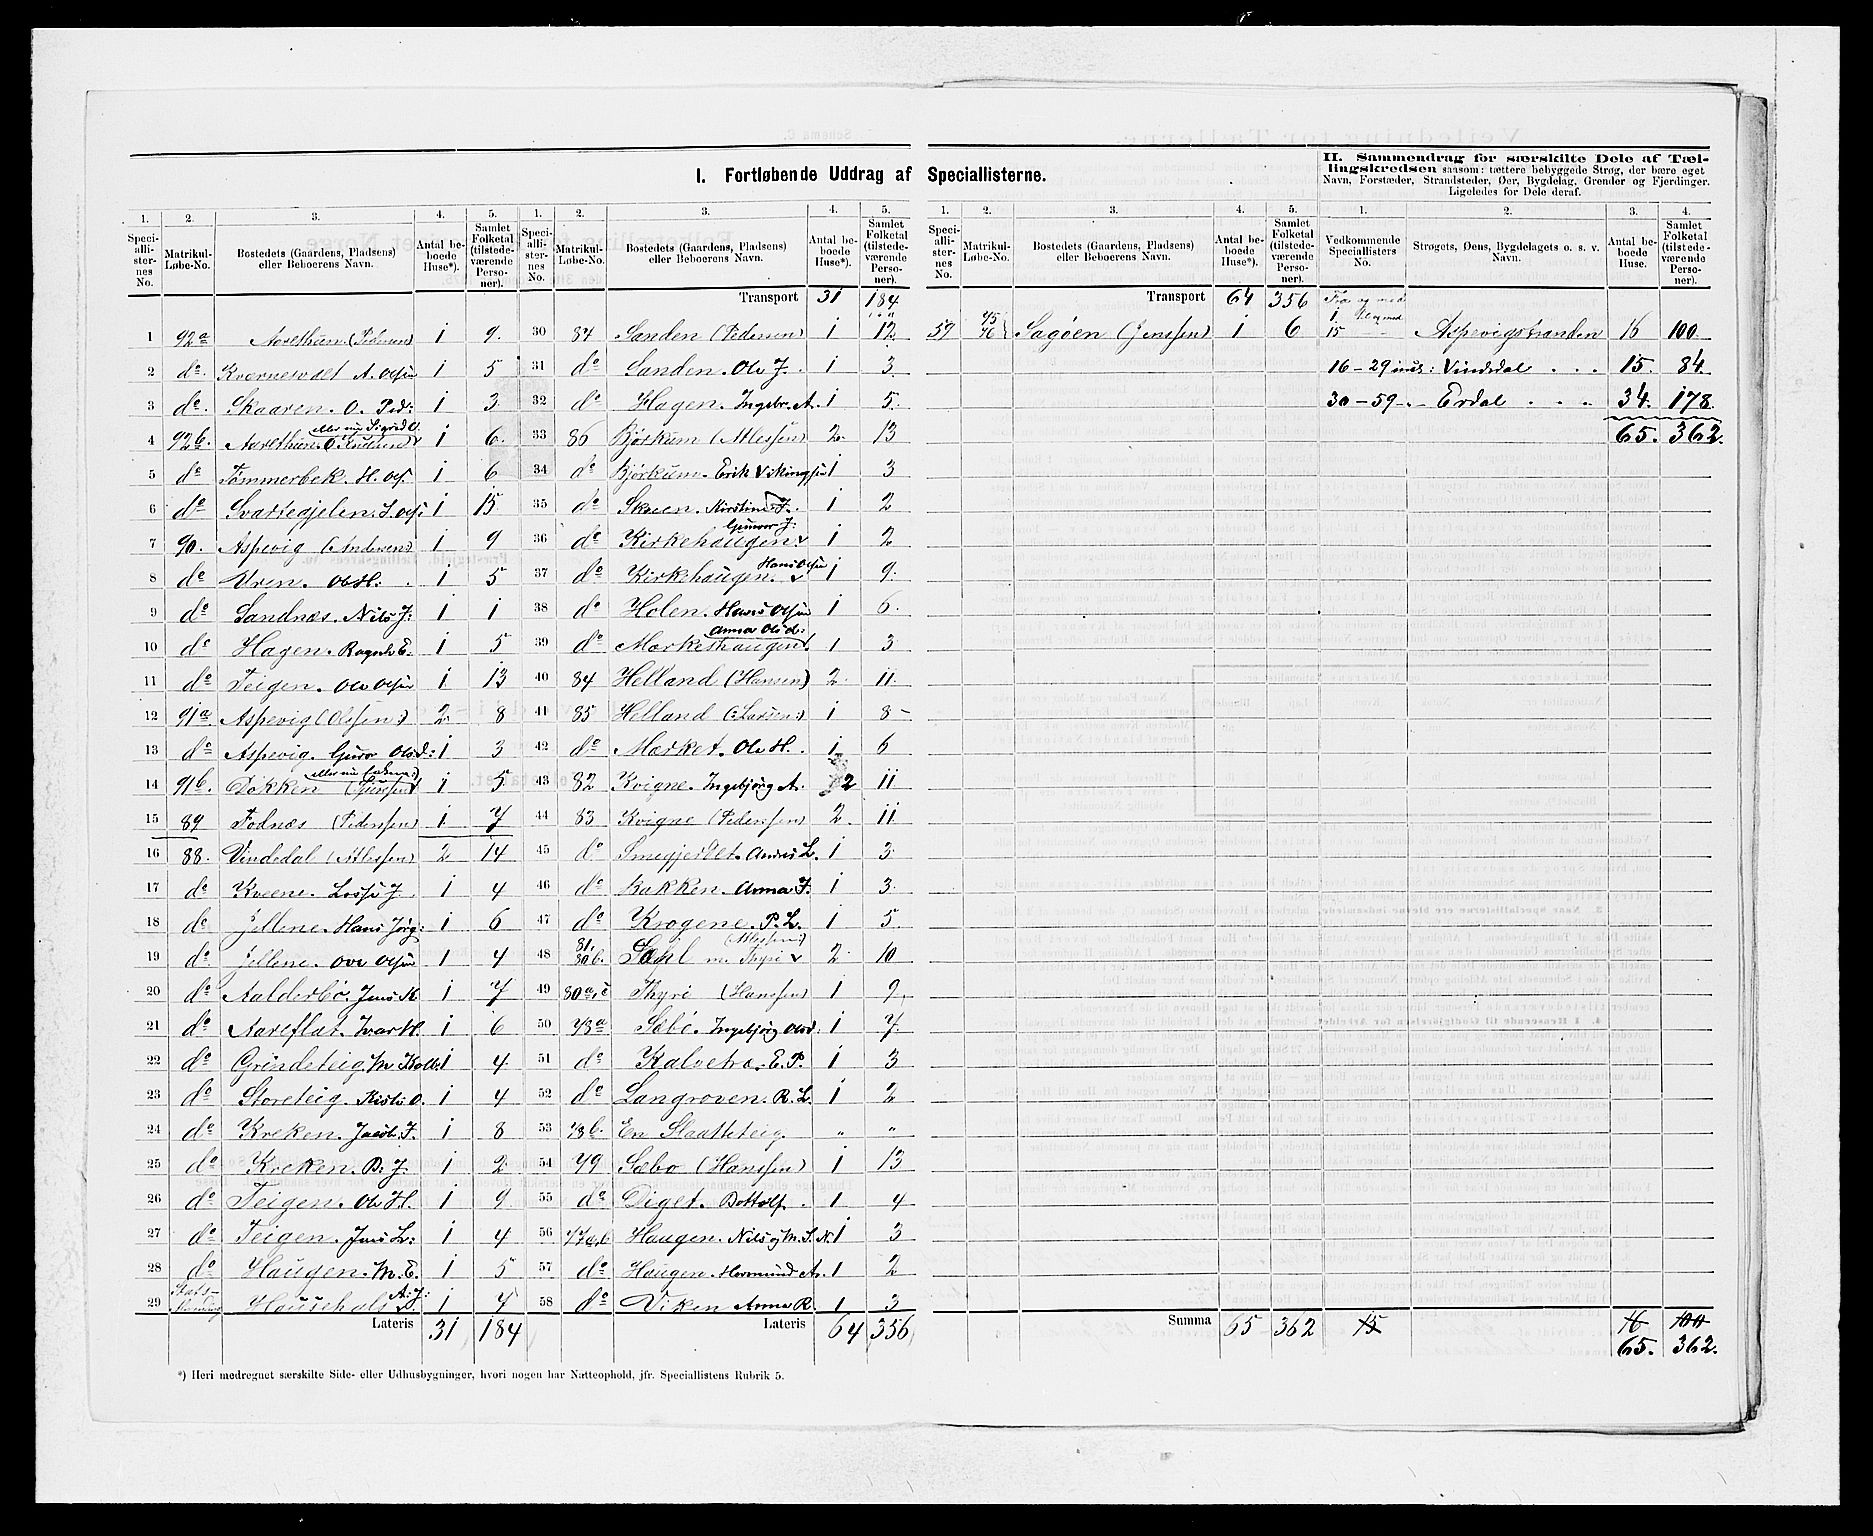 I. Fortløbende Uddrag af Speciallisterne.
II. Sammendrag for særskilte Dele af Tæl-
lingskredsen saasom: tættere bebyggede Strøg, der bære eget
Navn, Forstæder, Strandsteder, Øer, Bygdelag, Grender og Fjerdinger.
Ligeledes for Dele deraf.
1. 2. 3. 4. 5.
Speciallisternes No. Matrikul-Løbe-No. Bostedets (Gaardens, Pladsens) eller Beboerens Navn. Antal beboede Huse*). Samlet Folketal (tilstedeværende Personer).
1 92a Aarethun (Pedersen) 1 9.
2 do. Kvernesvalt A. Olsen 1 5
3 do. Skaaren. O. Ped: 1 3
4 92b. Aarethun 1 6.
5 do Tømmerbek. H. Ols. 1 6
6 do Svartegjelen. J. Ols: 1 15
7 90. Aspevig (Andersen) 1 9
8 do Uren. Ole H. 1 5
9 do Sandnæs. Nils J: 1 1
10 do Hagen. Ragnh. E. 1 5
11 do Teigen. Ole Olsen 1 13
12 91a Aspevig (Olssen) 2 8
13 do Aspevig. Guro Olsd: 1 3
14 91b. Dokken 1 5
15 89 Fodnæs (Pederssen) 1 7
16 88. Vindedal (Atlessen) 2 14
17 do Kveene. J. 1 4
18 do Jellene. Hans Jørg: 1 6
19 do Jellene. Ole Olsen 1 4
20 do Aalderbø. Jens 1 7
21 do Aareflæt. Ivar H. 1 6
22 do Grindsteig. M. 1 4
23 do Storeteig. Kists O. 1 4
24 do Kreken. Jacob J. 1 8
25 do Kreken. B. J. 1 2
26 do Teigen. Ole H. 1 9
27 do Teigen. Jens L: 1 4
28 do Haugen. M. E. 1 5
29 1 7
Lateris 31 184
1. 2. 3. 4. 5.
Speciallisternes No. Matrikul-Løbe-No. Bostedets (Gaardens, Pladsens) eller Beboerens Navn. Antal beboede Huse*). Samlet Folketal (tilstedeværende Personer).
Transport 31 184
30 87 Sanden (Pedersen) 1 12
31 do Sanden. Ole J. 1 3
32 do Hagen. Ingebr. A. 1 5.
33 86 Bjørkum (Atlessen) 2. 13
34 do Bjørkum. Erik Vikingsen 1 3
35 do Skoen. Kirstine J. 1 2
36 do Kirkehaugen. Gunvor J. 1 2
37 do Kirkehaugen. Hans Olsen 1 9.
38 do Holen. Hans Olsen 1 6.
39 do Markeshaugen. Anna Olsd: 1 3
40 84 Helland (Hansen) 2. 11.
41 85 Helland (Larsen) 1 8
42 do Market. Ole H. 1 6
43 82 Kvigne. Ingebjørg A. 2 11
44 83 Kvigne (Pederssen) 2. 11
45 do Smegjerdet. Anders L. 1 3
46 do Bakken. Anna J. 1 3.
47 do Krogene. P. L. 1 5.
48 81. 80b. m. Thyri (Atlessen) 2 10
49 80a,c Thyri (Hanssen) 1 9.
50 78a Sæbø. Ingebjørg Olsd. 1 7.
51 do Kalvetræ. E. P. 1 3
52 do Langroven. R. L. 1 2
53 78b. En Slaatteteig. " "
54 79 Sæbø (Hanssen) 1 13
55 do Diget. Bottolf 1 4
56 77a,b Haugen. Nils og M. S. N. 1 3
57 do Haugen. Hermund A. 1 2
58 do Viken Anna R. 1 3
Lateris 64 356
1. 2. 3. 4. 5.
Speciallisternes No. Matrikul-Løbe-No. Bostedets (Gaardens, Pladsens) eller Beboerens Navn. Antal beboede Huse*). Samlet Folketal (tilstedeværende Personer).
Transport 64 356
59 75 76 Sagøen (Jenssen) 1 6
Summa 65 362
1. 2. 3. 4.
Vedkommende Speciallisters No. Strøgets, Øens, Bygdelagets o. s. v. Navn. Antal beboede Huse. Samlet Folketal (tilstedeværende Personer).
Fra og med
1 til og med
15 Aspevigstranden 16 100
16 - 29 incl: Vindedal . . . 15. 84.
30 - 59 - Erdal . . . 34. 178.
65. 362.
15 16 100
65. 362.
*) Heri medregnet særskilte Side- eller Udhusbygninger, hvori nogen har Natteophold, jfr. Speciallistens Rubrik 5.